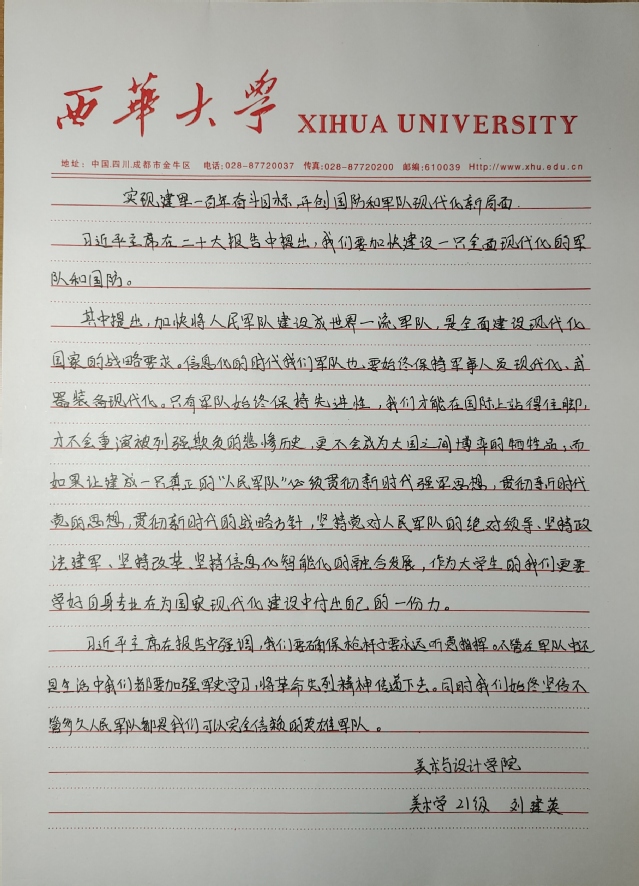 西華大學 XIHUA UNIVERSITY
地址：中国.四川.成都市金牛区 电话:028-87720037 传真:028-87720200 邮编:610039 Http://www.xhu.edu.cn
实现建军一百年奋斗目标，开创国防和军队现代化新局面.
习近平主席在二十大报告中提出，我们要加快建设一只全面现代化的军
队和国防。
其中提出，加快将人民军队建设成世界一流军队，是全面建设现代化
国家的战略要求。信息化的时代我们军队也要始终保持军事人员现代化、武
器装备现代化。只有军队始终保持先进性，我们才能在国际上站得住脚，
才不会重演被列强欺负的悲惨历史，更不会成为大国之间博弈的牺牲品，而
如果让建成一只真正的“人民军队”必须贯彻新时代强军思想，贯彻新时代
党的思想，贯彻新时代的战略方针，坚持党对人民军队的绝对领导、坚持政
法建军、坚持改革、坚持信息化智能化的融合发展，作为大学生的我们更要
学好自身专业在为国家现代化建设中付出自己的一份力。
习近平主席在报告中强调，我们要确保枪杆子要永远听党指挥。不管在军队中还
是生活中我们都要加强军史学习，将革命先烈精神传递下去。同时我们始终坚信不
管多久人民军队都是我们可以完全信赖的英雄军队。
美术与设计学院
美术学 21级 刘建英